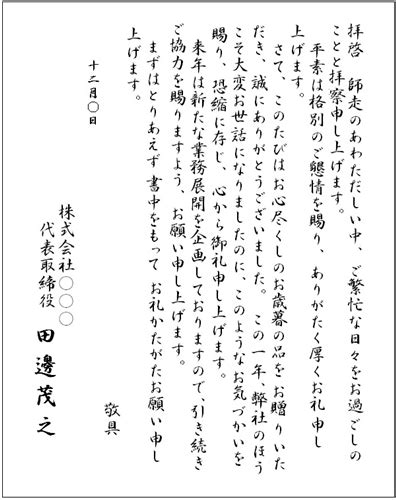 拝啓　師走のあわただしい中、ご繁忙な日々をお過ごしの
ことと拝察申し上げます。
　平素は格別のご懇情を賜り、ありがたく厚くお礼申し
上げます。
　さて、このたびはお心尽くしのお歳暮の品をお贈りいた
だき、誠にありがとうございました。この一年、弊社のほう
こそ大変お世話になりましたのに、このようなお気づかいを
賜り、恐縮に存じ、心から御礼申し上げます。
　来年は新たな業務展開を企画しておりますので、引き続き
ご協力を賜りますよう、お願い申し上げます。
　まずはとりあえず書中をもってお礼かたがたお願い申し
上げます。
敬具
十二月〇日
株式会社〇〇〇
代表取締役　田邊茂之